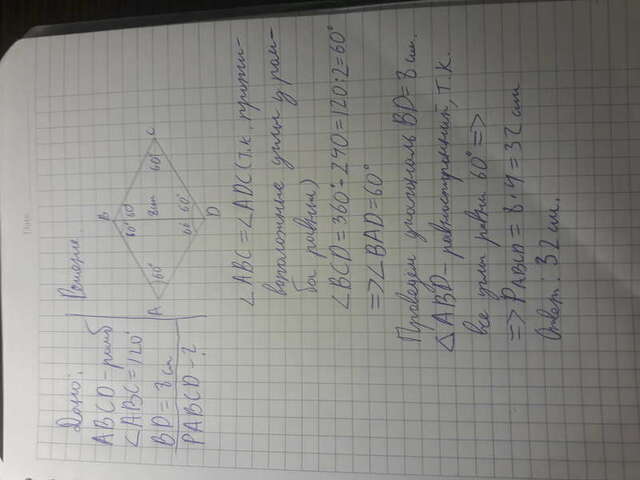 Дано:
ABCD - ромб
∠ABC = 120°
BD = 8 см
PABCD - ?
Решение.
B
60 60
A
60°
8 см
60°
C
60 60°
D
∠ABC = ∠ADC (т.к. проти-
воположные углы у ром-
ба равны)
∠BCD = 360° - 240 = 120 : 2 = 60°
=> ∠BAD = 60°
Проведем диагональ BD = 8 см.
△ABD - равносторонний, т.к.
все углы равны 60° =>
=> PABCD = 8 · 4 = 32 см
Ответ: 32 см.